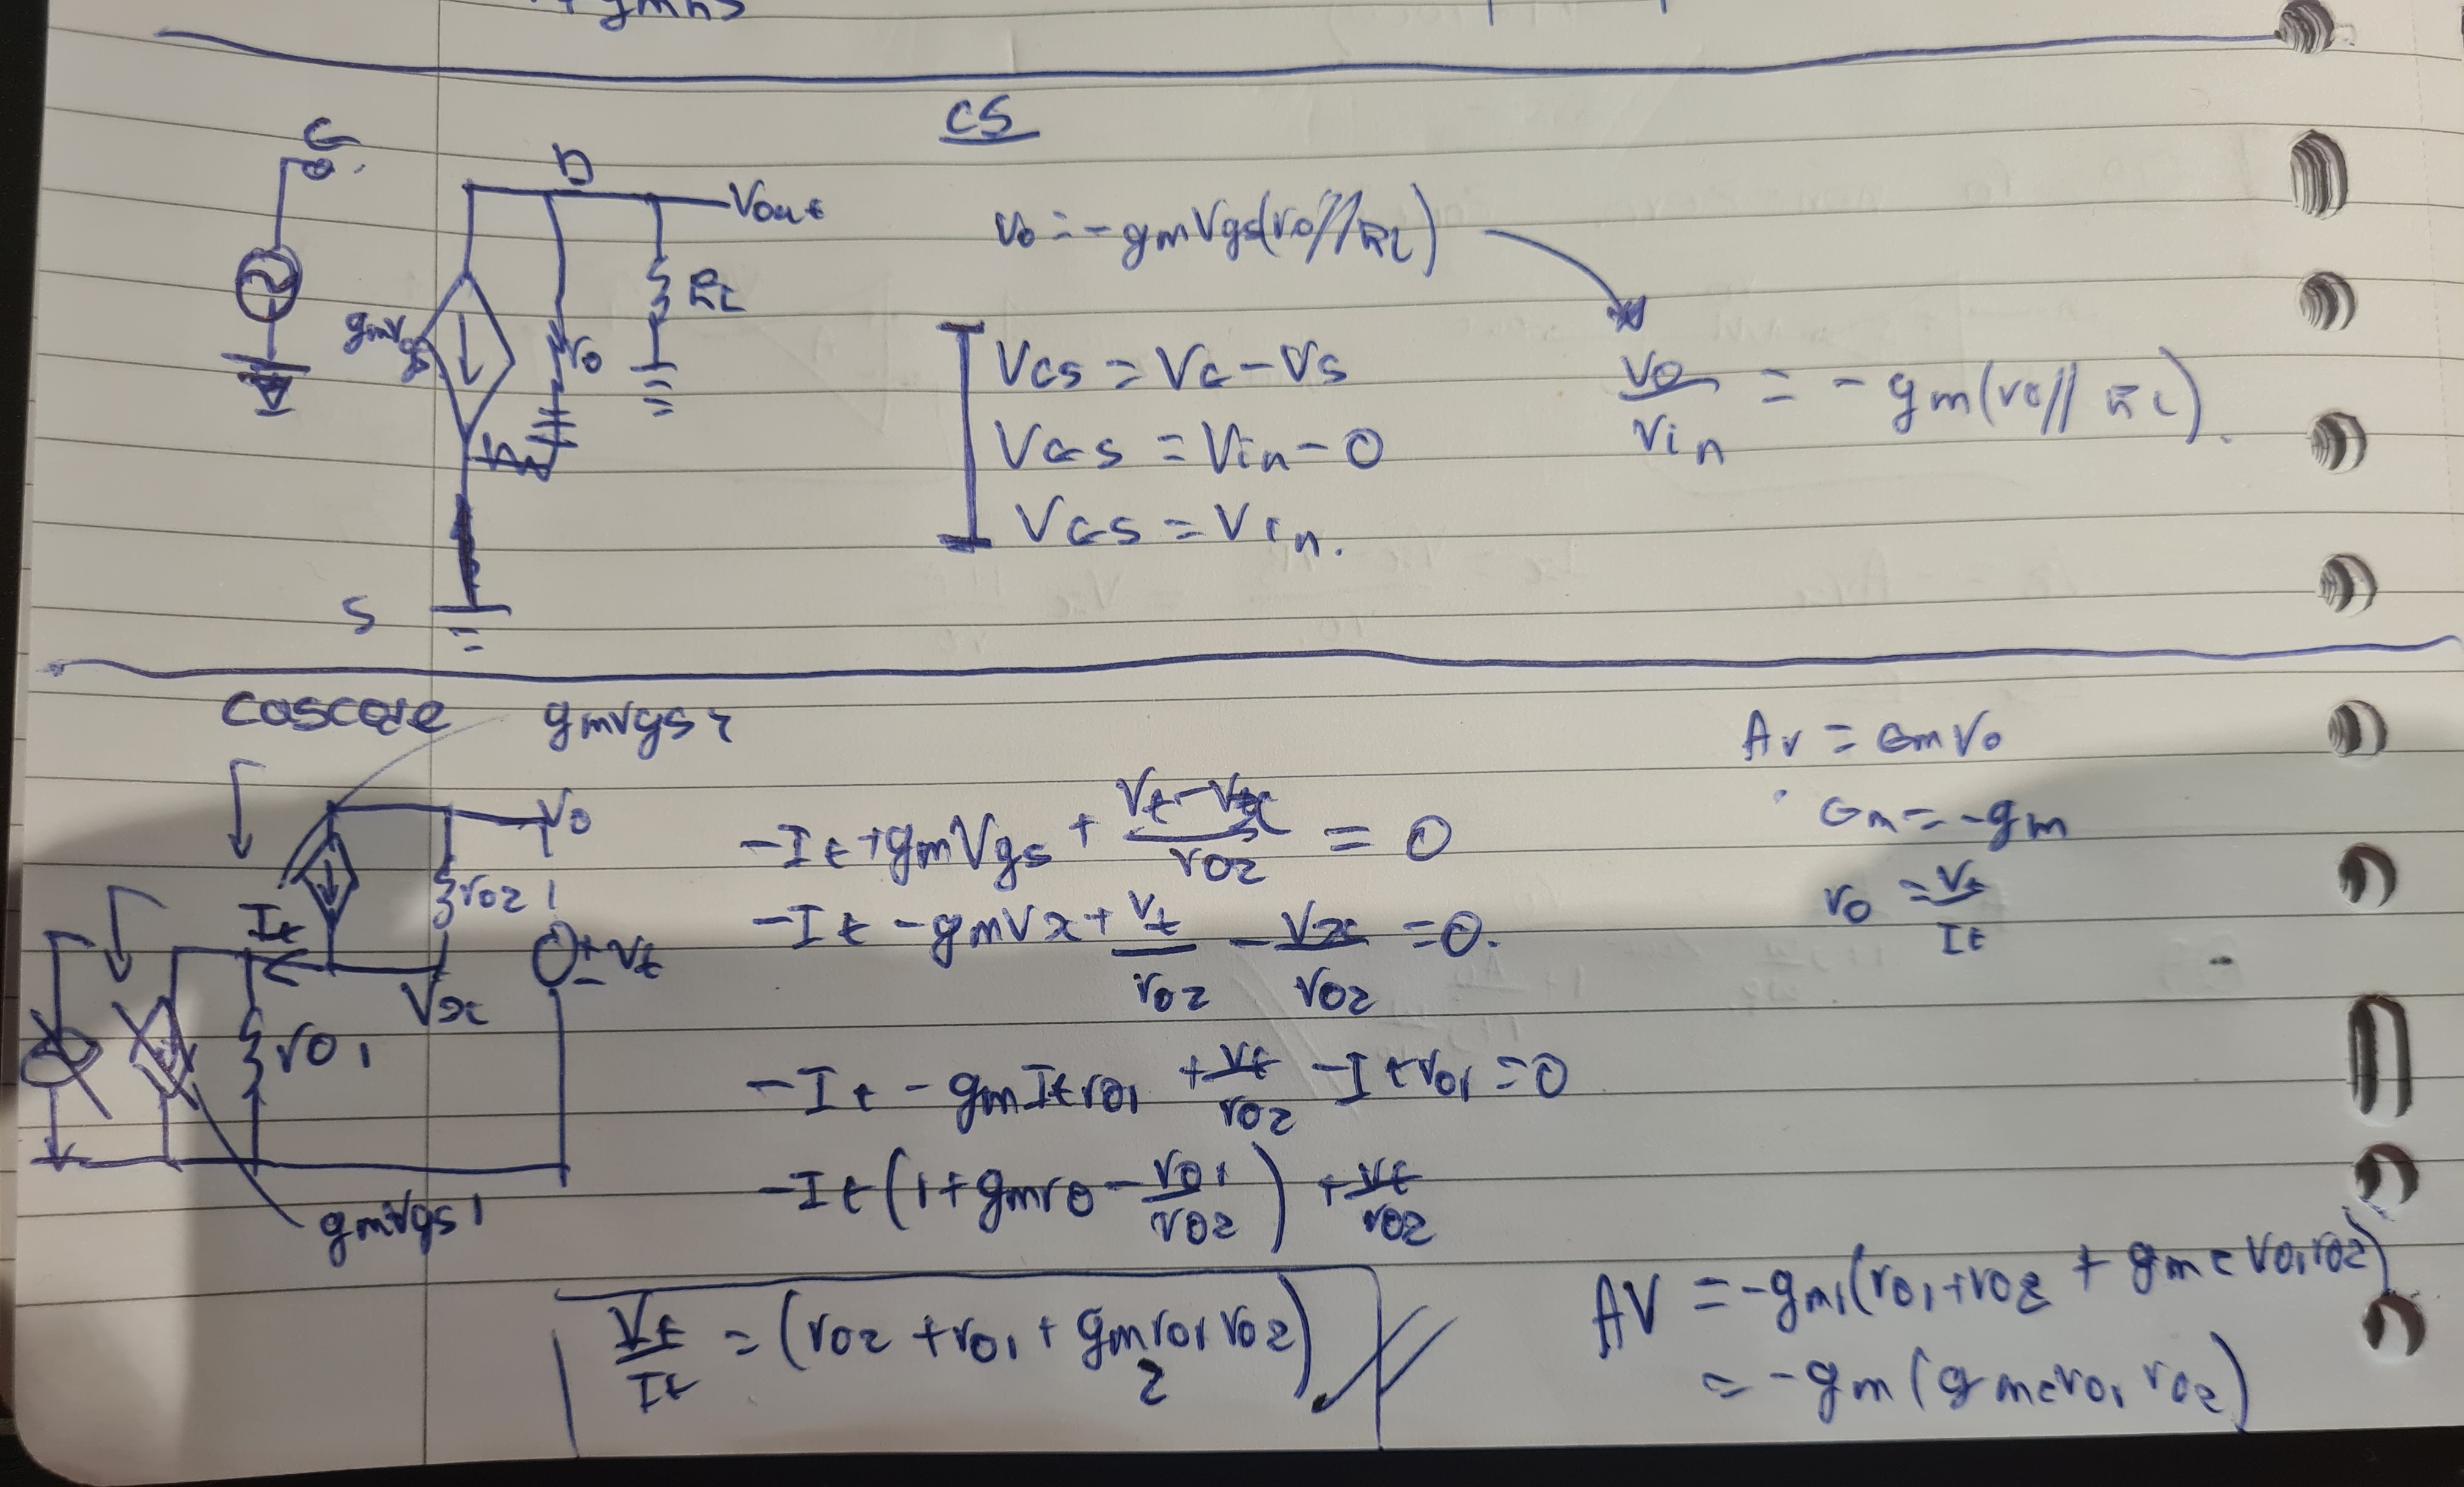 CS
G
D
Vout
gmVgs
ro
RL
S
Vo = -gmVgs(ro//RL)
VGS = VG - VS
VGS = Vin - 0
VGS = Vin.
Vo/Vin = -gm(ro// RL).
Cascode
gmVgs2
Vo
ro2
It
Vx
+ - Vt
ro1
gmVgs1
-It + gmVgs + (Vt - Vx)/ro2 = 0
-It - gmVx + Vt/ro2 - Vx/ro2 = 0.
-It - gmItro1 + Vt/ro2 - Itro1 = 0
-It(1 + gmro - ro1/ro2) + Vt/ro2
Vt/It = (ro2 + ro1 + gm2ro1ro2)
Av = Gmro
Gm = -gm
ro = Vt/It
AV = -gm1(ro1 + ro2 + gm2ro1ro2)
= -gm(gm2ro1ro2)